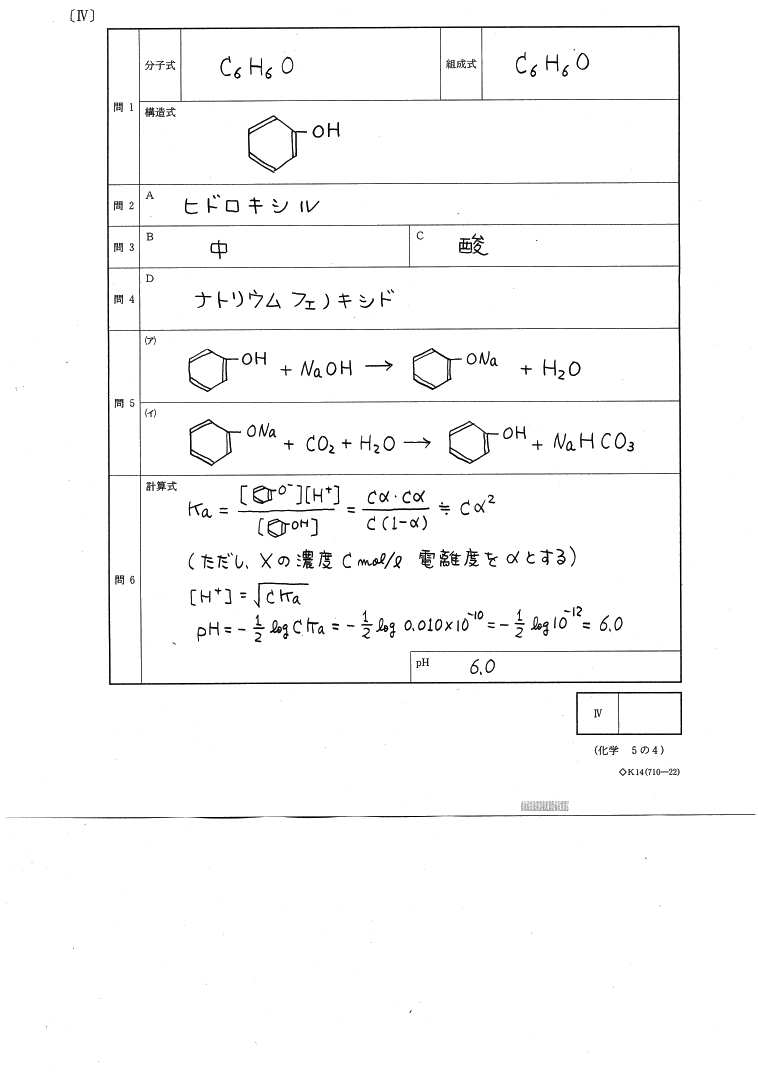 〔Ⅳ〕
分子式 C₆H₆O 組成式 C₆H₆O
問 1
構造式
OH
問 2 A ヒドロキシル
問 3 B 中 C 酸
問 4 D ナトリウムフェノキシド
問 5
(ア) OH + NaOH → ONa + H₂O
(イ) ONa + CO₂ + H₂O → OH + NaHCO₃
問 6
計算式
Ka = [O⁻][H⁺] / [OH] = Cα・Cα / C(1-α) ≒ Cα²
(ただし、Xの濃度 C mol/l 電離度をαとする)
[H⁺] = √CKa
pH = - 1/2 log CKa = - 1/2 log 0.010×10⁻¹⁰ = - 1/2 log 10⁻¹² = 6.0
pH 6.0
Ⅳ
(化学 5の4)
◇K14(710—22)